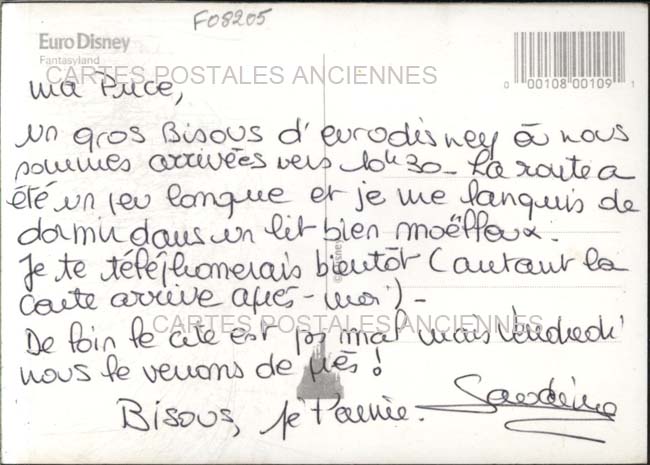 F08205
Euro Disney
Fantasyland
CARTES POSTALES ANCIENNES
0 00108 00109 1
Ma Puce,
un gros Bisous d'eurodisney où nous
sommes arrivées vers 10h30 - La route a
été un peu longue et je me languis de
dormir dans un lit bien moëlleux.
Je te téléphonerais bientôt (autant la
carte arrive après-moi) -
© Disney
CARTES POSTALES ANCIENNES
De loin le site est pas mal mais Vendredi
nous le verrons de près !
Bisous, je t'aime. Sandrine